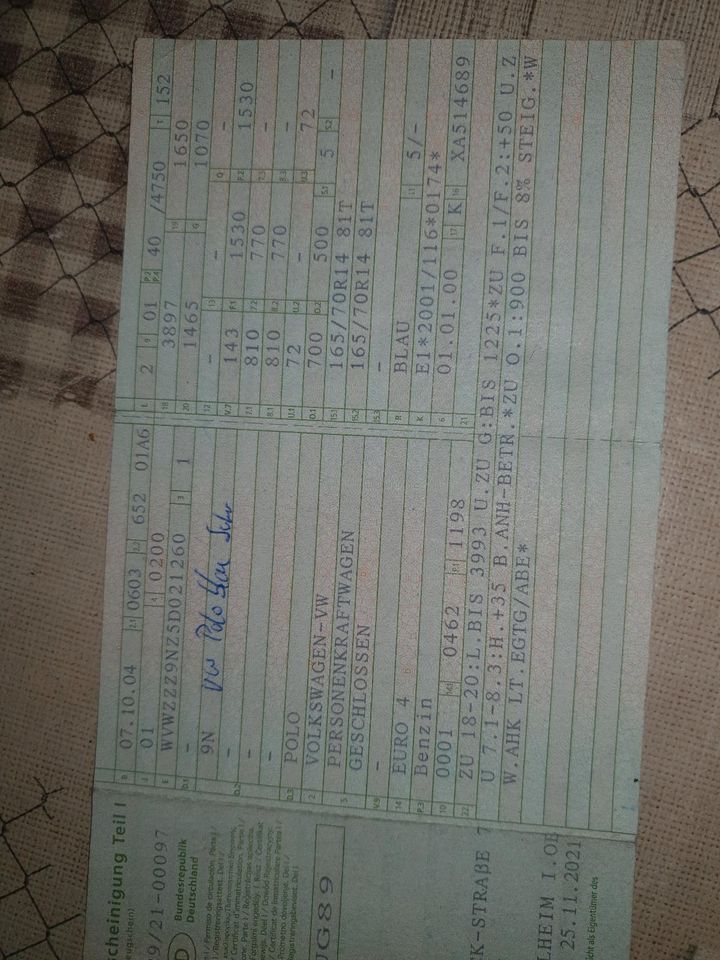 cheinigung Teil I
ugschein)
9/21-00097
D
Bundesrepublik
Deutschland
JG89
K-STRAßE 7
LHEIM I.OB
25.11.2021
icht als Eigentümer des
B 07.10.04 2.1 0603 2.2 652 01A6
J 01 4 0200
E WVWZZZ9NZ5D021260 3 1
D.1 -
9N VW Polo blau
D.2 -
-
-
D.3 POLO
2 VOLKSWAGEN-VW
5 PERSONENKRAFTWAGEN
GESCHLOSSEN
V.9 -
14 EURO 4
P.3 Benzin
10 0001 14.1 0462 P.1 1198
22 ZU 18-20:L.BIS 3993 U.ZU G:BIS 1225*ZU F.1/F.2:+50 U.Z
U 7.1-8.3:H.+35 B.ANH-BETR.*ZU O.1:900 BIS 8% STEIG.*W
W.AHK LT.EGTG/ABE*
L 2 9 01 P.2 P.4 40 /4750 T 152
18 3897 19 1650
20 1465 G 1070
12 - 13 - Q -
V.7 143 F.1 1530 F.2 1530
7.1 810 7.2 770 7.3 -
8.1 810 8.2 770 8.3 -
U.1 72 U.2 - U.3 72
O.1 700 O.2 500 S.1 5 S.2 -
15.1 165/70R14 81T
15.2 165/70R14 81T
15.3 -
R BLAU 11 5/-
K E1*2001/116*0174*
6 01.01.00 17 K 16 XA514689
21